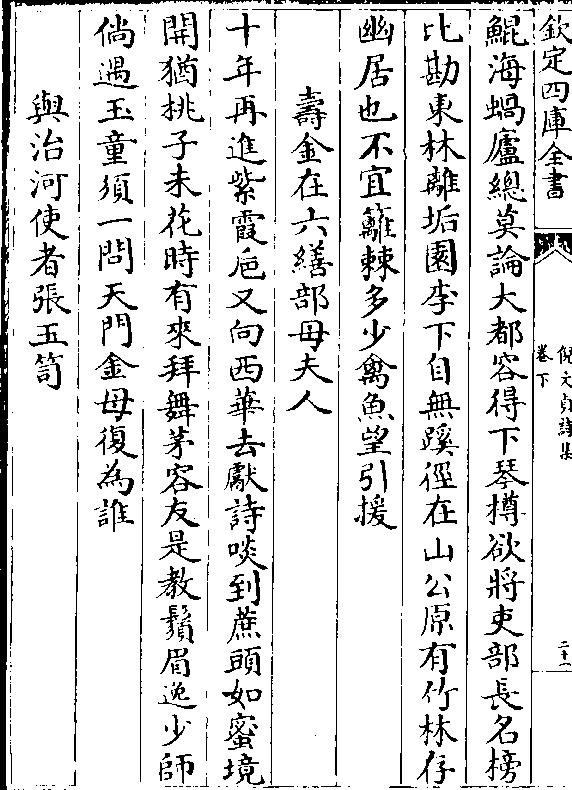 欽定四庫全書
倪文貞詩集
卷下
二十一
鯤海蝸廬總莫論大都容得下琴樽欲將吏部長名榜
比勘東林離垢園李下自無蹊徑在山公原有竹林存
幽居也不宜籬棘多少禽魚望引援
壽金在六繕部母夫人
十年再進紫霞卮又向西華去獻詩啖到蔗頭如蜜境
開猶桃子未花時有來拜舞茅容友是教鬚眉逸少師
倘遇玉童須一問天門金母復為誰
與治河使者張五笥